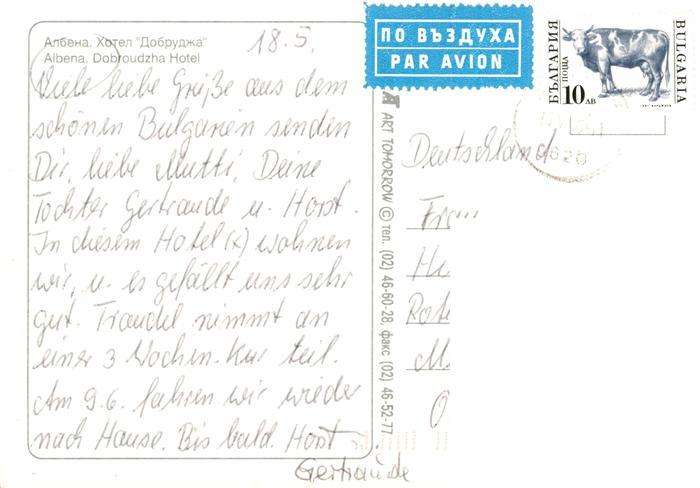 Албена. Хотел "Добруджа"
Albena. Dobroudzha Hotel
18.5.
Viele liebe Grüße aus dem
schönen Bulgarien senden
Dir, liebe Mutti, Deine
Tochter Gertraude u. Horst.
In diesem Hotel (x) wohnen
wir, u. es gefällt uns sehr
gut. Traudel nimmt an
einer 3 Wochen-Kur teil.
Am 9.6. fahren wir wieder
nach Hause. Bis bald. Horst
Gertraude
ART TOMORROW © тел. (02) 46-60-28, факс (02) 46-52-77
ПО ВЪЗДУХА
PAR AVION
БЪЛГАРИЯ
ПОЩА
10 ЛВ
BULGARIA
Deutschland